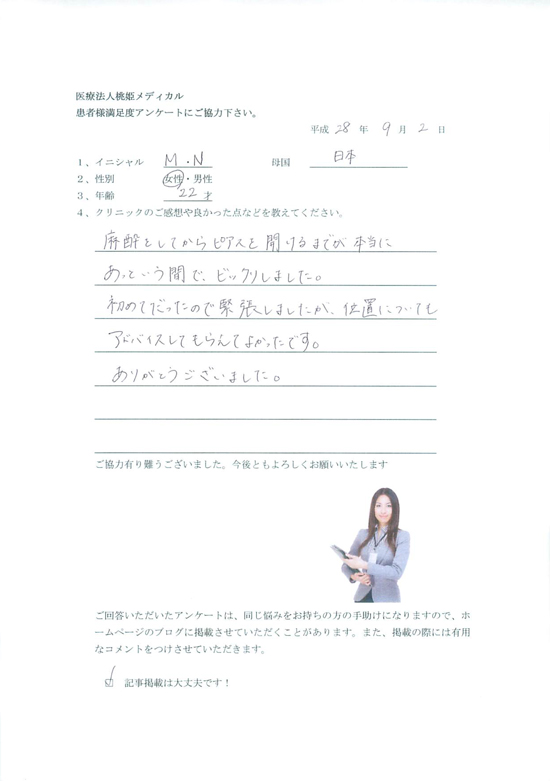 医療法人桃姫メディカル
患者様満足度アンケートにご協力下さい。
平成 28 年 9 月 2 日
1、イニシャル M・N 母国 日本
2、性別 女性・男性
3、年齢 22 才
4、クリニックのご感想や良かった点などを教えてください。
麻酔をしてからピアスを開けるまでが本当に
あっという間で、ビックリしました。
初めてだったので緊張しましたが、位置についても
アドバイスしてもらえてよかったです。
ありがとうございました。
ご協力有り難うございました。今後ともよろしくお願いいたします
ご回答いただいたアンケートは、同じ悩みをお持ちの方の手助けになりますので、ホ
ームページのブログに掲載させていただくことがあります。また、掲載の際には有用
なコメントをつけさせていただきます。
☑ 記事掲載は大丈夫です！